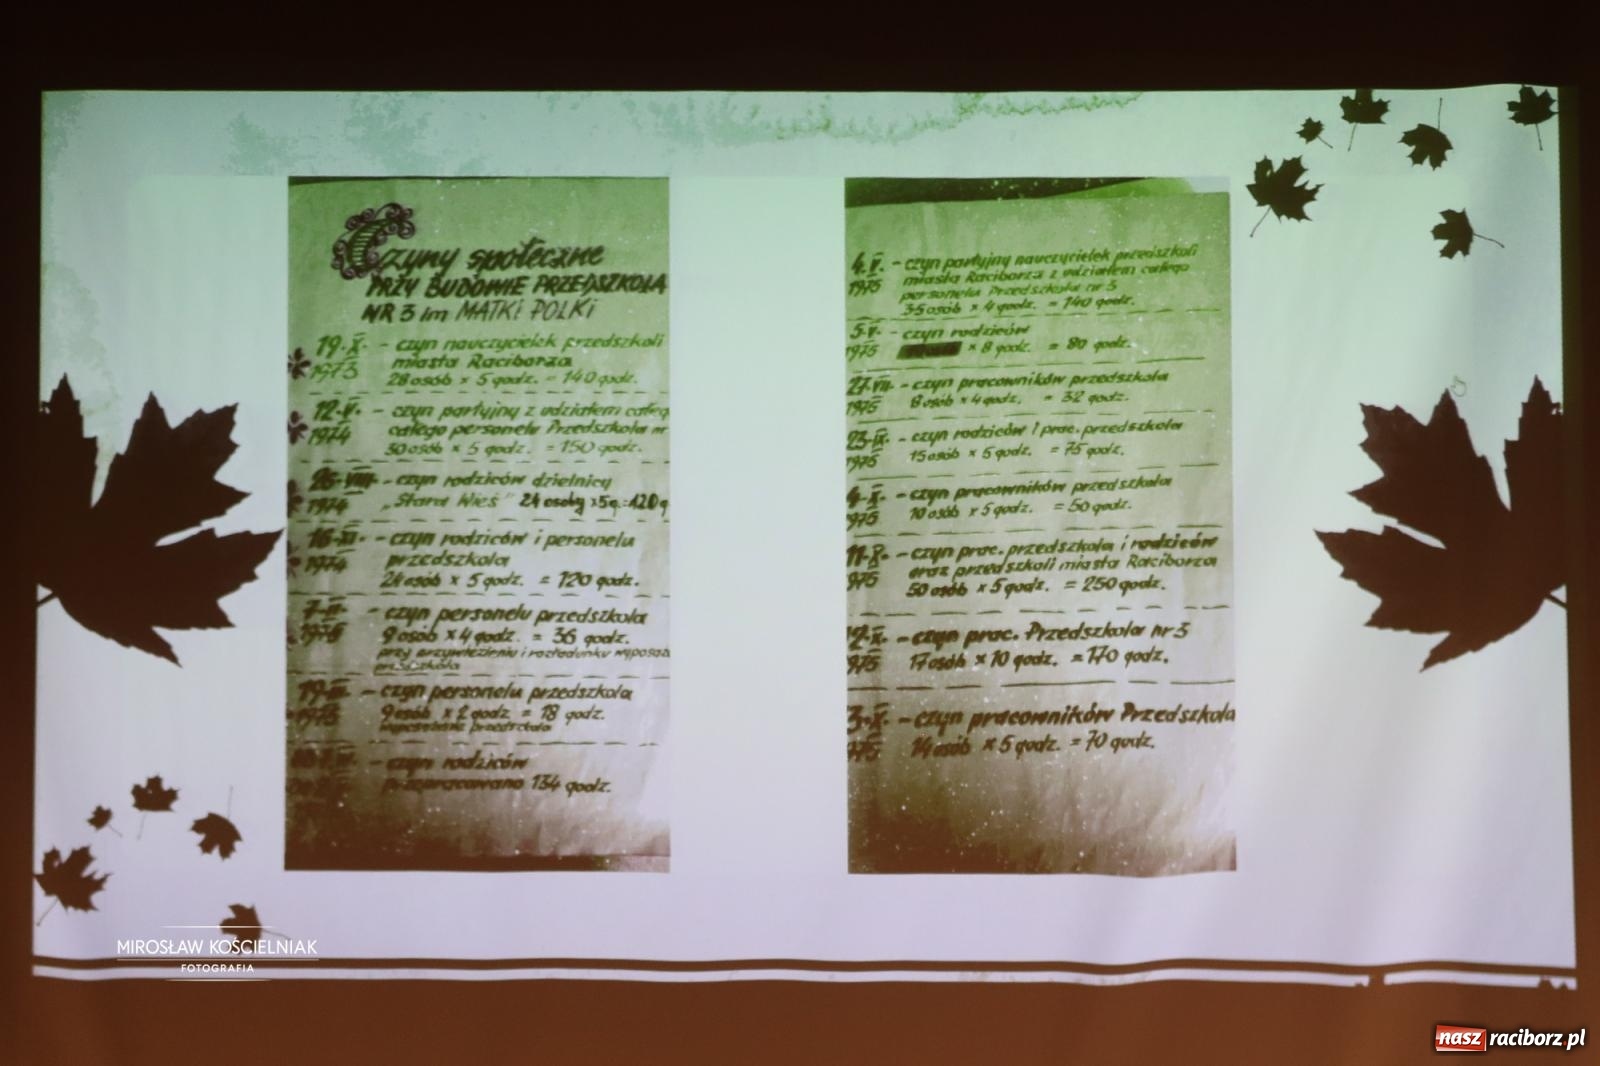 Czyny społeczne
PRZY BUDOWIE PRZEDSZKOLA
NR 3 im MATKI POLKI
19·X· – czyn nauczycielek przedszkoli
1973 miasta Raciborza
28 osób × 5 godz. = 140 godz.
12·V· – czyn partyjny z udziałem całeg
1974 całego personelu Przedszkola nr
30 osób × 5 godz. = 150 godz.
25·VIII· – czyn rodziców dzielnicy
1974 „Stara Wieś" 24 osoby × 5 g. = 120 g
16·XI· – czyn rodziców i personelu
1974 przedszkola
24 osób × 5 godz. = 120 godz.
– czyn personelu przedszkola
1975 9 osób × 4 godz. = 36 godz.
przy przywiezieniu i rozładunku wyposaż
przedszkola
19·III· – czyn personelu przedszkola
1975 9 osób × 2 godz. = 18 godz.
wyposażenie przedszkola
– czyn rodziców
przepracowano 134 godz.
4·V· – czyn partyjny nauczycielek przedszkoli
1975 miasta Raciborza z udziałem całego
personelu Przedszkola nr 3
35 osób × 4 godz. = 140 godz.
5·V· – czyn rodziców
1975 × 8 godz. = 80 godz.
27·VII· – czyn pracowników przedszkola
1975 8 osób × 4 godz. = 32 godz.
23·IX· – czyn rodziców i prac. przedszkola
1975 15 osób × 5 godz. = 75 godz.
4·X· – czyn pracowników przedszkola
1975 10 osób × 5 godz. = 50 godz.
11·X· – czyn prac. przedszkola i rodziców
975 oraz przedszkoli miasta Raciborza
50 osób × 5 godz. = 250 godz.
12·X· – czyn prac. Przedszkola nr 3
975 17 osób × 10 godz. = 170 godz.
3·X· – czyn pracowników Przedszkola
975 14 osób × 5 godz. = 70 godz.
MIROSŁAW KOŚCIELNIAK
FOTOGRAFIA
nasz raciborz.pl